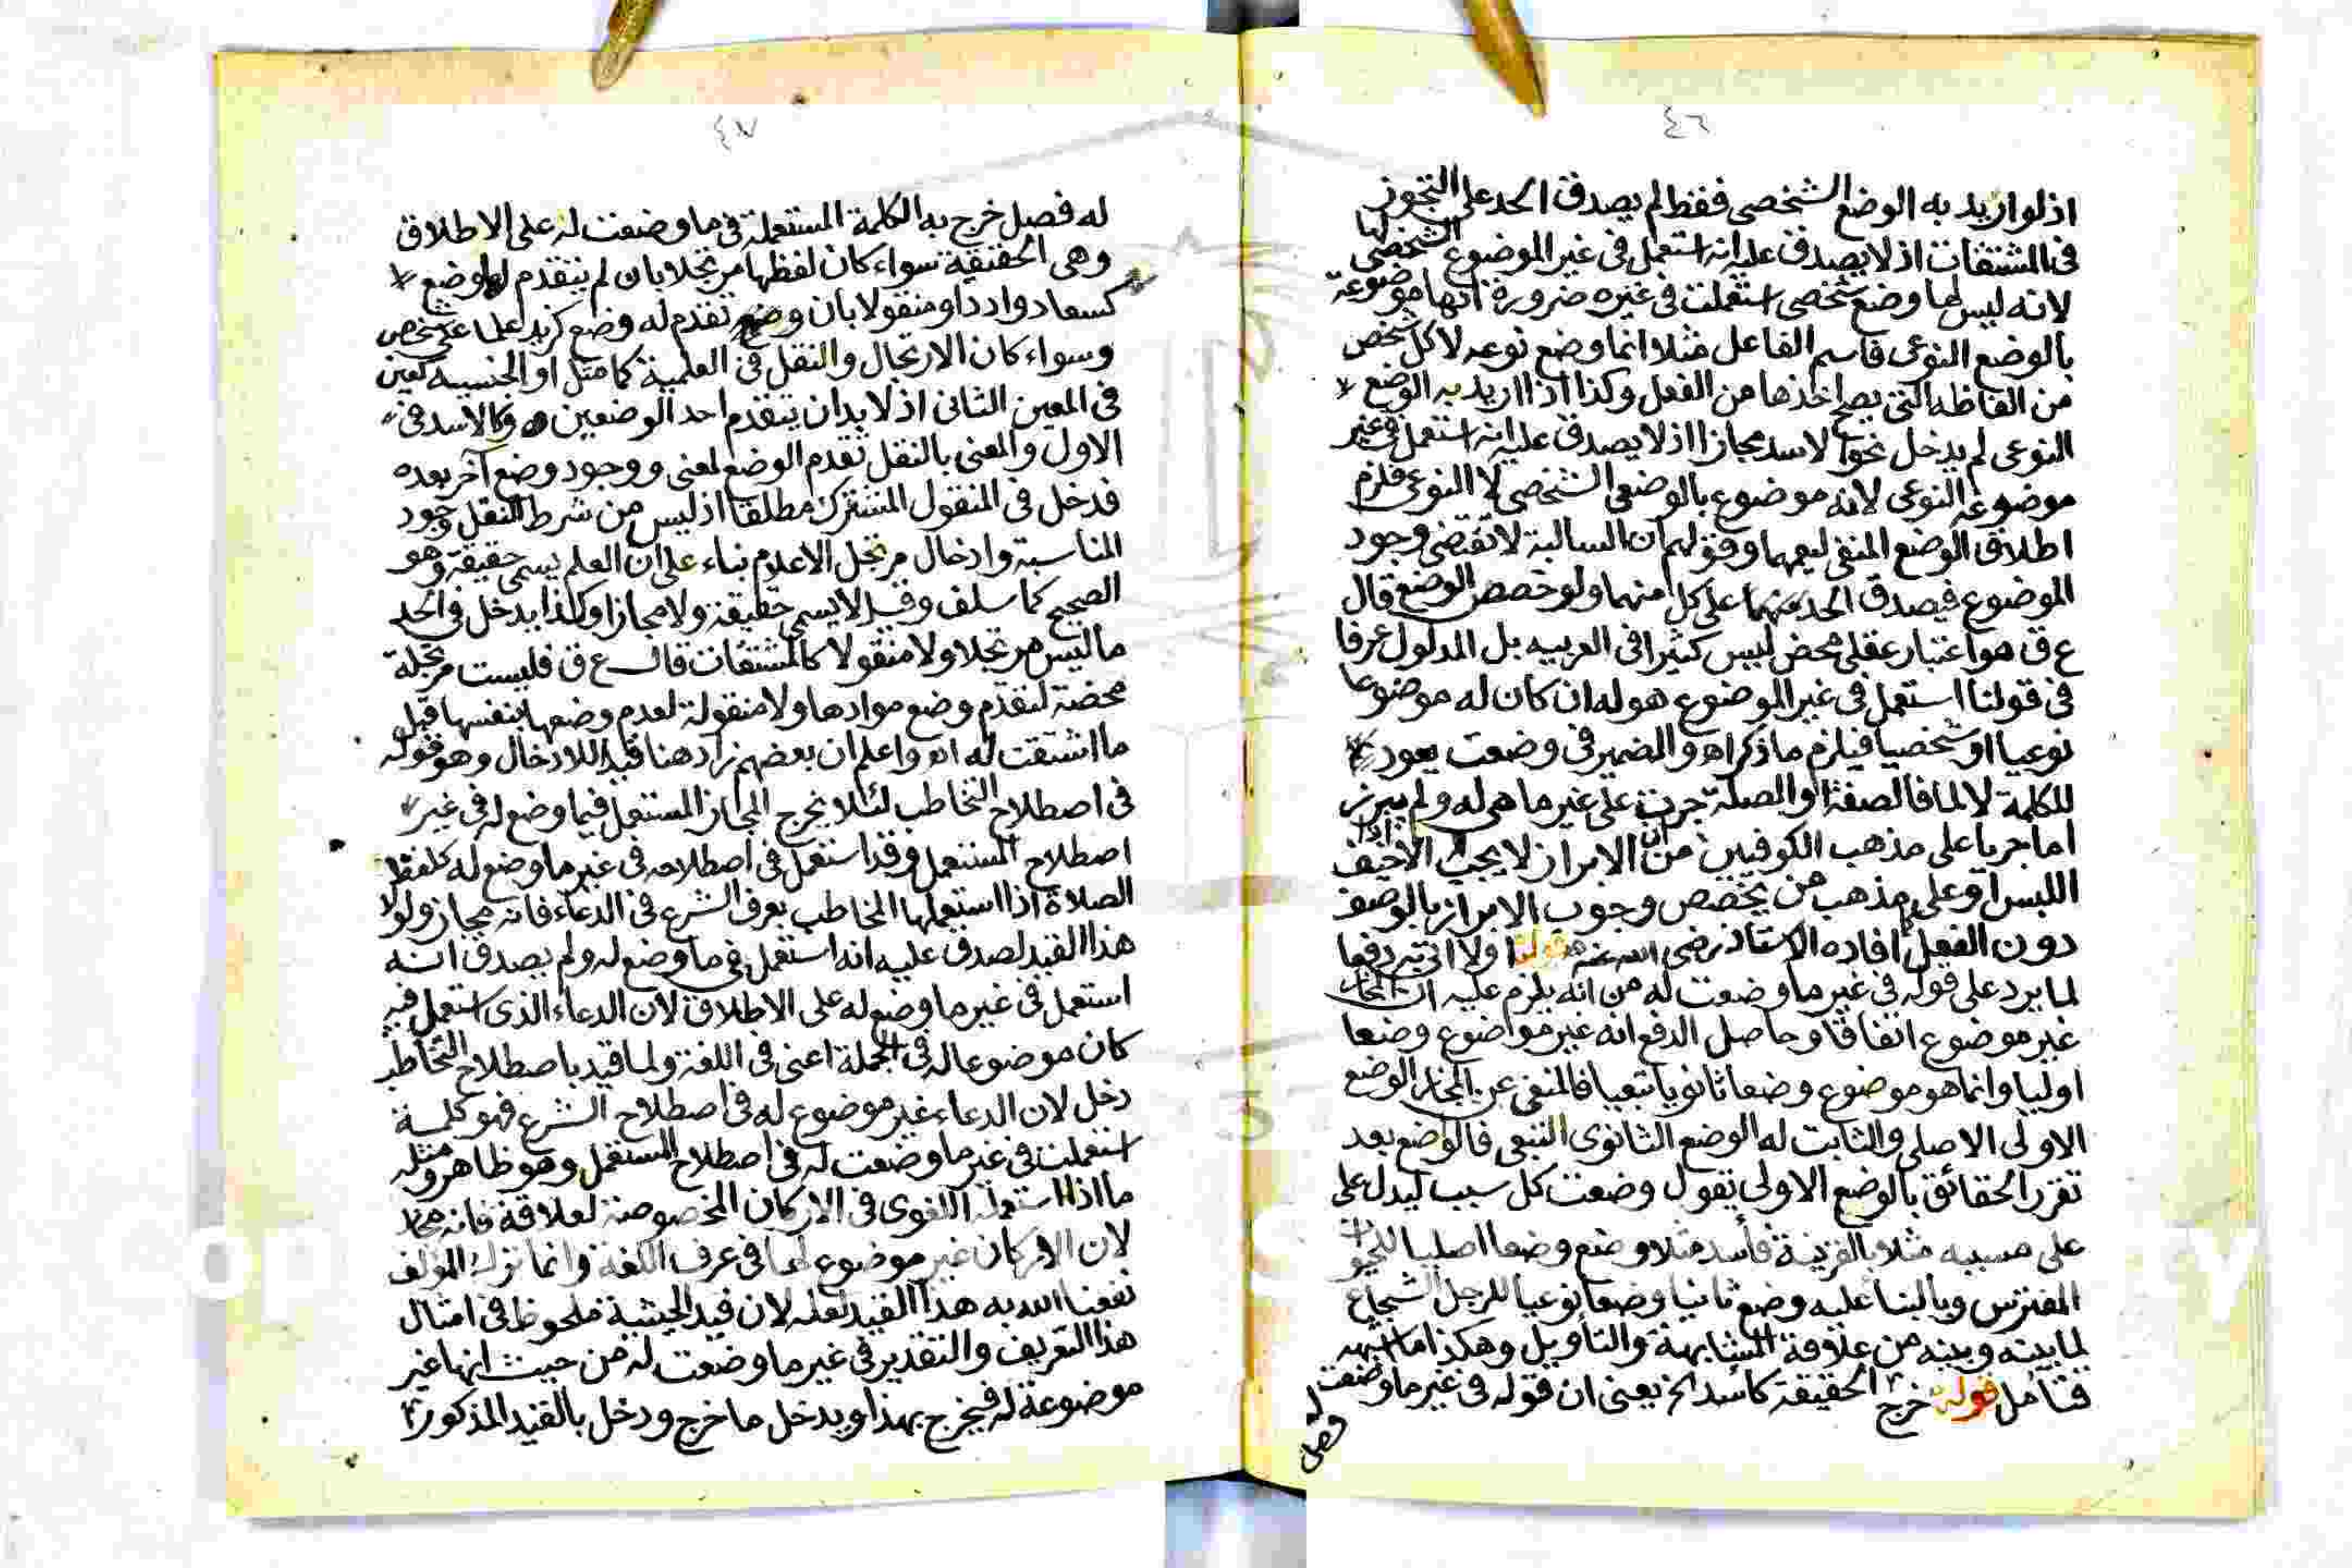 ٤٦
اذ لو اريد به الوضع الشخصى فقط لم يصدق الحد على التجوز
فى المشتقات اذ لا يصدق عليه انه استعمل فى غير الموضوع الشخصى لها
لانه ليس لها وضع شخصى استعملت فى غيره ضرورة انها موضوعة
بالوضع النوعى فاسم الفاعل مثلا انما وضع نوعه لا كل شخص
من الفاظه التى يصح اخذها من الفعل وكذا اذا اريد به الوضع
النوعى لم يدخل نحو الاسد مجازا اذ لا يصدق عليه انه استعمل فى غير
موضوعه النوعى لانه موضوع بالوضع الشخصى لا النوعى فلزم
اطلاق الوضع المنفى ليعمهما وقولهم ان السالبة لا تقتضى وجود
الموضوع فيصدق الحد منهما على كل منهما ولو خصص الوضع قال
ع ق هو اعتبار عقلى محض ليس كثيرا فى العربيه بل المدلول عرفا
فى قولنا استعمل فى غير الموضوع هو له ان كان له موضوعا
نوعيا او شخصيا فيلزم ما ذكر اه والضمير فى وضعت يعود
للكلمة لا لما فالصفة او الصلة جرت على غير ما هى له ولم يبرز
اما جريا على مذهب الكوفيين من ان الابراز لا يجب الا اذا خيف
اللبس او على مذهب من يخصص وجوب الابراز بالوصف
دون الفعل افاده الاستاذ رضى الله عنه قولنا اولا اتى به دفعا
لما يرد على قوله فى غير ما وضعت له من انه يلزم عليه ان المجاز
غير موضوع اتفاقا وحاصل الدفع انه غير موضوع وضعا
اوليا وانما هو موضوع وضعا ثانويا تبعيا فالمنفى عن المجاز الوضع
الاولى الاصلى والثابت له الوضع الثانوى التبعى فالوضع بعد
تقرر الحقائق بالوضع الاولى تقول وضعت كل سبب ليدل على
على مسببه مثلا بالقرينة فأسد مثلا وضع وضعا اصليا للحيوان
المفترس وبالبنا عليه وضع ثانيا وضعا نوعيا للرجل الشجاع
لما بينه وبينه من علاقة المشابهة والتأويل وهكذا ما اشبهه
فتأمل قوله خرج الحقيقة كأسد الخ يعنى ان قوله فى غير ما وضعت له
فصل
٤٧
له فصل خرج به الكلمة المستعملة فى ما وضعت له على الاطلاق
وهى الحقيقية سواء كان لفظها مرتجلا بان لم يتقدم لها وضع
كسعاد وادد او منقولا بأن تقدم له وضع كزيد علما على شخص
وسواء كان الارتجال والنقل فى العلمية كما مثل او الجنسيه كعين
فى المعين الثانى اذ لا بد ان يتقدم احد الوضعين وكالاسد فى
الاول والمعنى بالنقل تقدم الوضع لمعنى ووجود وضع آخر بعده
فدخل فى المنقول المشترك مطلقا اذ ليس من شرط النقل وجود
المناسبة وادخال مرتجل الاعلام بناء على ان العلم يسمى حقيقة وهو
الصحيح كما سلف وقيل لا يسمى حقيقة ولا مجازا وكذا يدخل فى الحد
ما ليس مرتجلا ولا منقولا كالمشتقات قال ع ق فليست مرتجلة
محضة لتقدم وضع موادها ولا منقولة لعدم وضعها بنفسها قبل
ما اشتقت له اه واعلم ان بعضهم زاد هنا قيدا للادخال وهو قوله
فى اصطلاح التخاطب لئلا يخرج المجاز المستعمل فيما وضع له فى غير
اصطلاح المستعمل وقد استعمل فى اصطلاحه فى غير ما وضع له كلفظ
الصلاة اذا استعملها المخاطب بعرف الشرع فى الدعاء فانه مجاز ولولا
هذا القيد لصدق عليه انه استعمل فى ما وضع له ولم يصدق انه
استعمل فى غير ما وضع له على الاطلاق لان الدعاء الذى استعمل فيه
كان موضوعا له فى الجملة اعنى فى اللغة ولما قيد باصطلاح التخاطب
دخل لان الدعاء غير موضوع له فى اصطلاح الشرع فهو كلمة
استعملت فى غير ما وضعت له فى اصطلاح المستعمل وهو ظاهر ومثله
ما اذا استعمله اللغوى فى الاركان المخصوصة لعلاقة فانه مجاز
لان الاركان غير موضوع لها فى عرف اللغة وانما ترك المؤلف
نفعنا الله به هذا القيد لعله لان قيد الحيثية ملحوظ فى امثال
هذا التعريف والتقدير فى غير ما وضعت له من حيث انها غير
موضوعة له فيخرج بهذا ويدخل ما خرج ودخل بالقيد المذكور